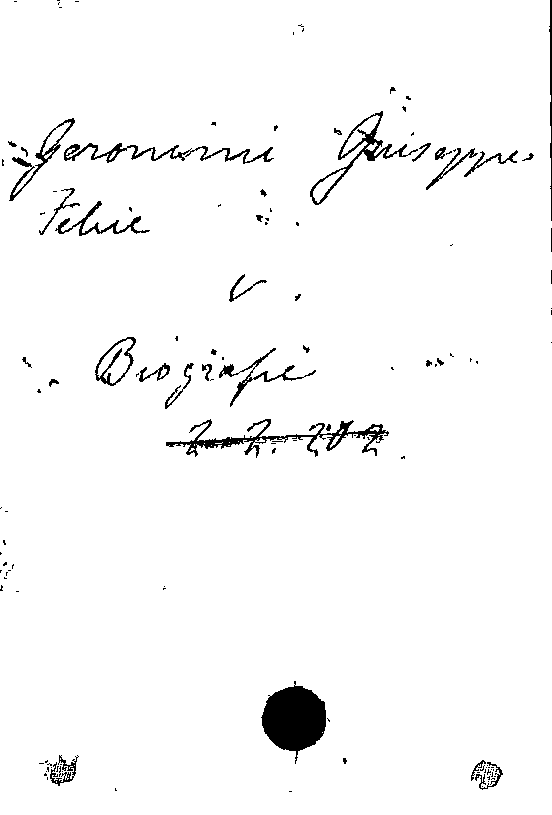 Geronimi Guiseppe
Felice
v.
Biografie
Z. Z. 202